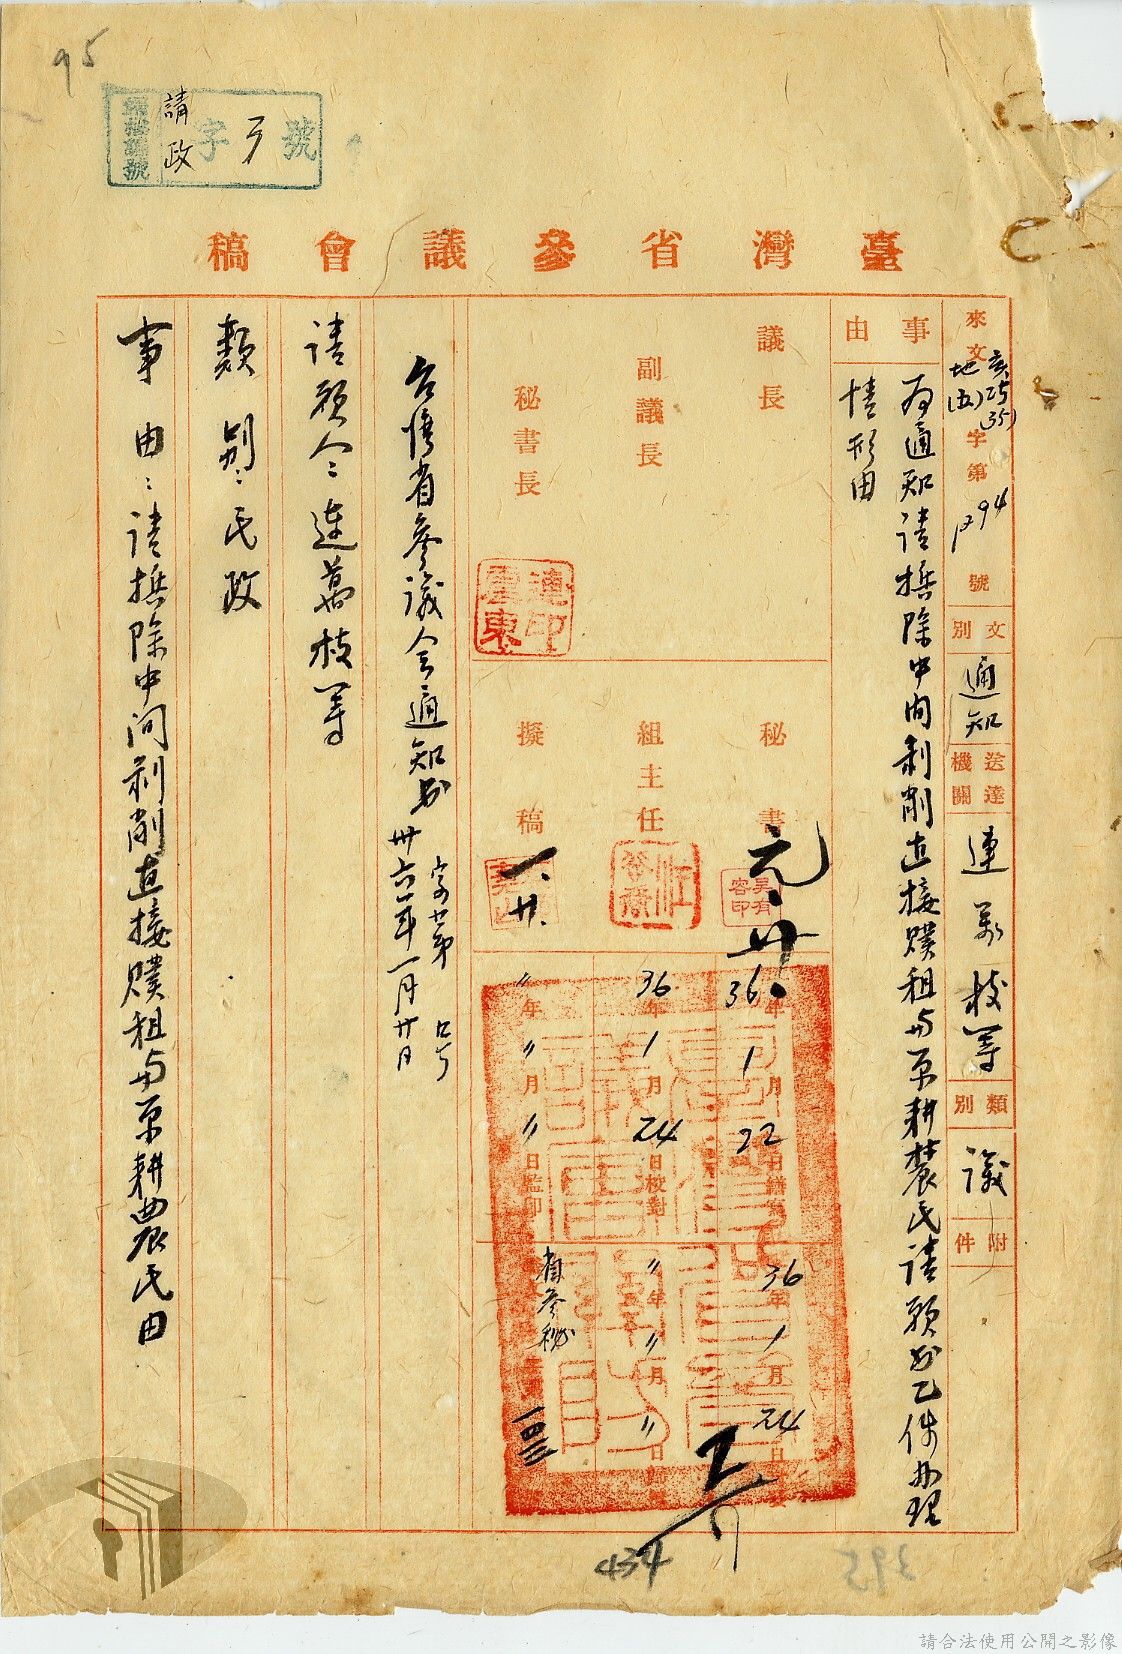 95
請政字 号 號
臺灣省參議會稿
來文 亥巧(35) 地(五)字第1794號
文別 通知
送達機關 連萬枝等
類別 議
附件
事由 為通知請撤除中間剥削直接贌租與原耕農民請願書乙件办理
情形由
議長
副議長
秘書長
連印震東
秘書 元.廿.
吳有容印
組主任
擬稿 一.廿.
36年1月22日繕寫
36年1月24日校對
〃年〃月〃日監印
36年1月24日
〃年〃月〃日
省參秘
434
395
台灣省參議会通知书
字第 号
卅六年一月廿日
請願人:連萬枝等
類別:民政
事由:請撤除中间剥削直接贌租與原耕農民由
請合法使用公開之影像